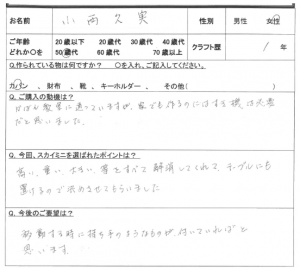 お名前 小雨久実 性別 男性 女性
ご年齢 20歳以下 20歳代 30歳代 40歳代 クラフト歴 1年
どれか○を 50歳代 60歳代 70歳以上
Q.作られている物は何ですか？ ○を入れ、ご記入してください。
カバン 、 財布 、 靴 、 キーホルダー 、 その他( )
Q. ご購入の動機は？
かばん教室に通っていますが、家でも作るのにはすき機は必要
だと思いました。
Q. 今回、スカイミニを選ばれたポイントは？
高い、重い、大きい、等をすべて解消してくれて、テーブルにも
置けるので決めさせてもらいました
Q. 今後のご要望は？
移動する時に持ち手のようなものが、付いていればと
思います。